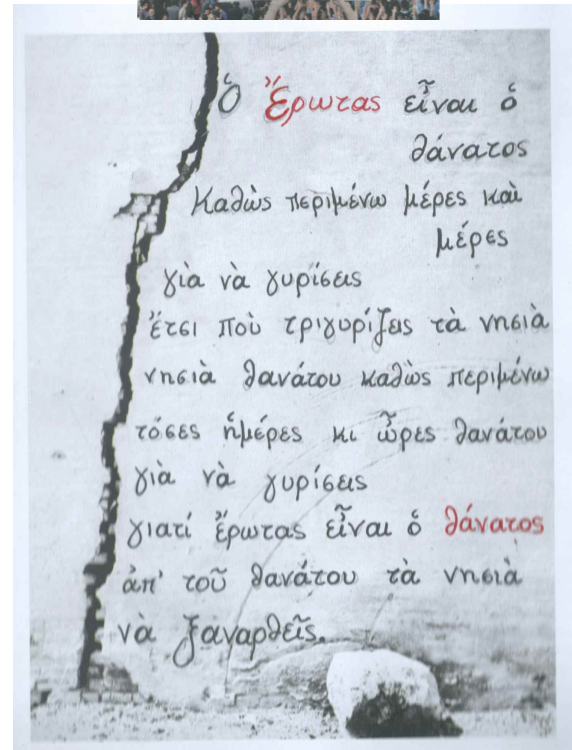 Ὁ Ἔρωτας εἶναι ὁ
θάνατος
Καθὼς περιμένω μέρες καὶ
μέρες
γιὰ νὰ γυρίσεις
ἔτσι ποὺ τριγυρίζεις τὰ νησιὰ
νησιὰ θανάτου καθὼς περιμένω
τόσες ἡμέρες κι ὧρες θανάτου
γιὰ νὰ γυρίσεις
γιατί ἔρωτας εἶναι ὁ θάνατος
ἀπ' τοῦ θανάτου τὰ νησιὰ
νὰ ξαναρθεῖς.